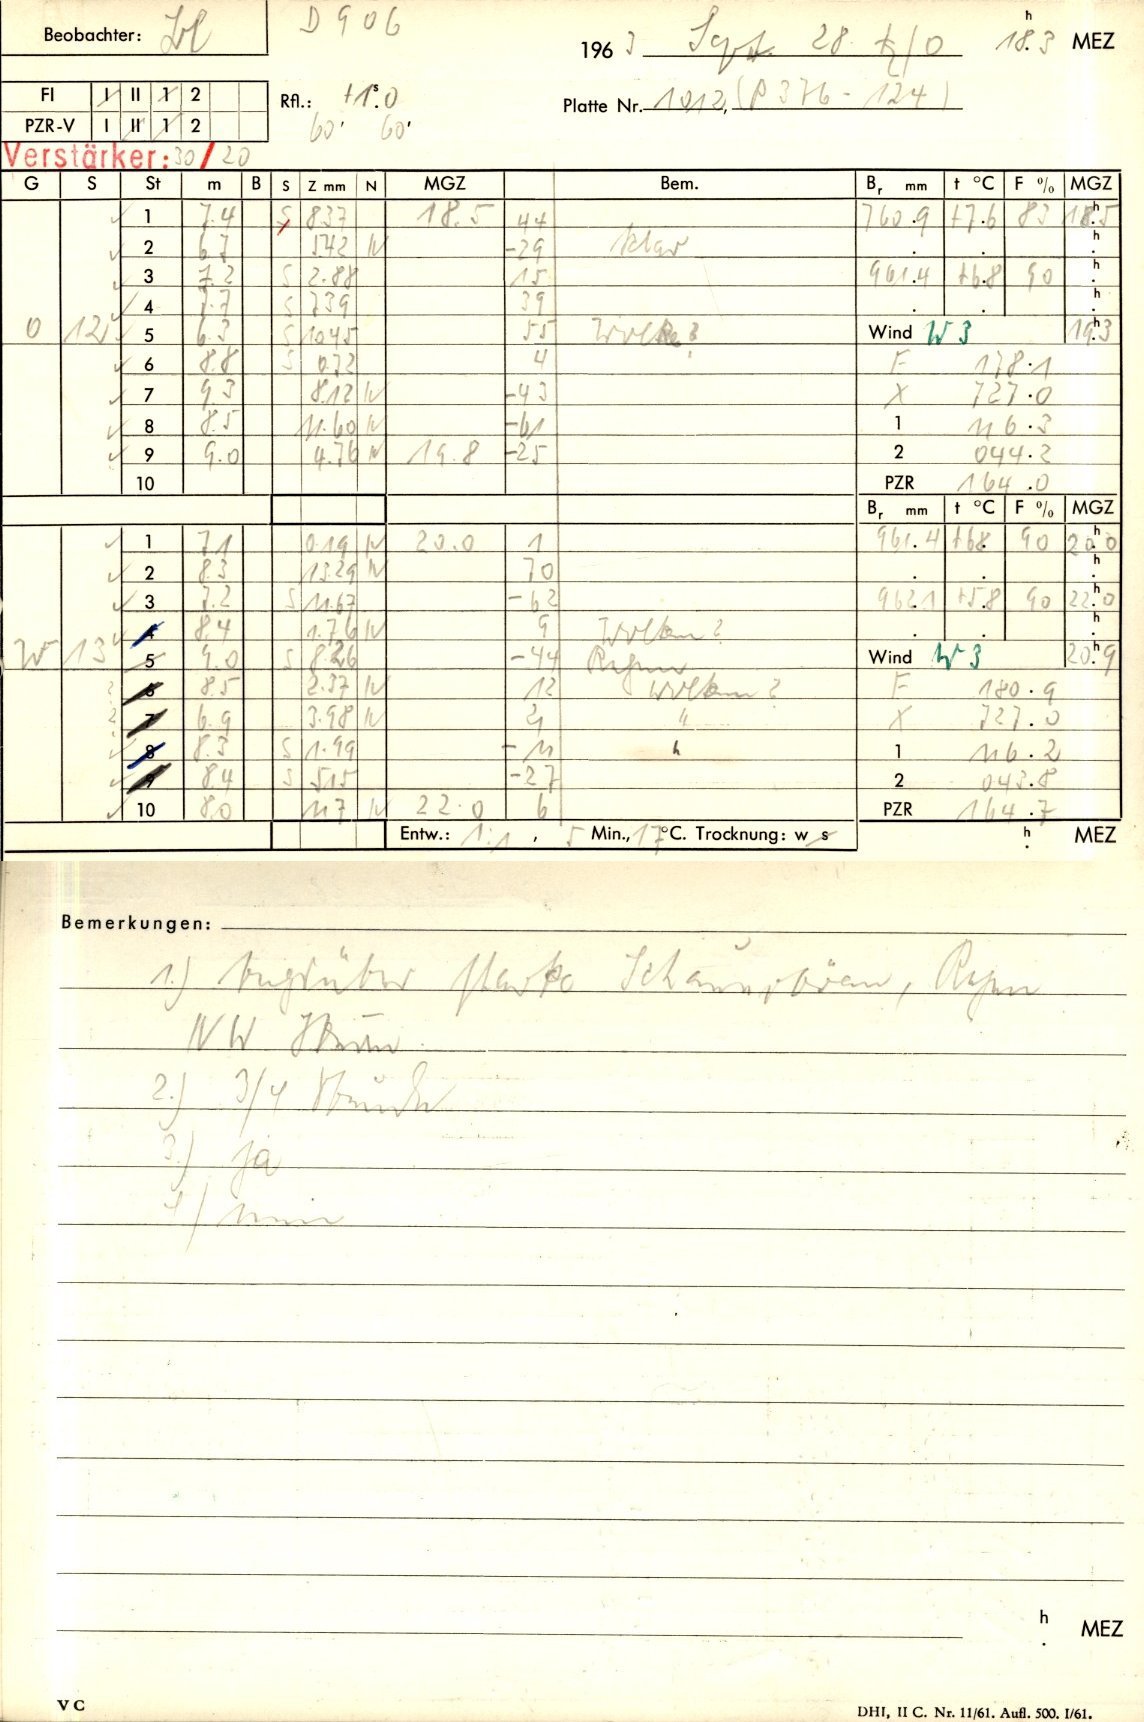 D 906
Beobachter:
196 3 Sept. 28. 18 h . 3 MEZ
FI I II 1 2
Rfl.: +1 s . 0
Platte Nr. 1012, (P 376 - 124)
PZR-V I II 1 2
60' 60'
Verstärker: 30 / 20
G S St m B S Z mm N MGZ Bem. Br mm t °C F % MGZ
1 7.4 S 837 18.5 44 760.9 +7.6 83 18 h . 5
2 6.7 5.42 N -29 klar . . h .
3 7.2 S 2.88 15 961.4 +6.8 90 h .
4 7.7 S 739 39 . . h .
0 12 5 6.3 S 1045 55 Wolke? Wind W 3 19 h . 3
6 8.8 S 0.72 4 F 178.1
7 9.3 8.12 N -43 X 727.0
8 8.5 11.60 N -61 1 116.3
9 9.0 4.76 N 19.8 -25 2 044.2
10 PZR 164.0
Br mm t °C F % MGZ
1 7.1 0.19 N 20.0 1 961.4 +6.8 90 20 h . 0
2 8.3 13.29 N 70 . . h .
3 7.2 S 11.67 -62 962.1 +5.8 90 22 h . 0
4 8.4 1.76 N 9 Wolken? . . h .
W 13 5 9.0 S 8.26 -44 Regen Wind W 3 20 h . 9
6 8.5 2.37 N 12 Wolken? F 180.9
7 6.9 3.98 N 21 " X 727.0
8 8.3 S 1.99 -11 " 1 116.2
9 8.4 S 5.15 -27 2 043.8
10 8.0 1.17 N 22.0 6 PZR 164.7
Entw.: 1:1 , 5 Min., 17 °C. Trocknung: w s h . MEZ
Bemerkungen:
1.) tagsüber starke Schauerböen, Regen
NW Sturm.
2.) 3/4 Stunde
3.) ja
4.) nein
h . MEZ
V C
DHI, II C. Nr. 11/61. Aufl. 500. I/61.